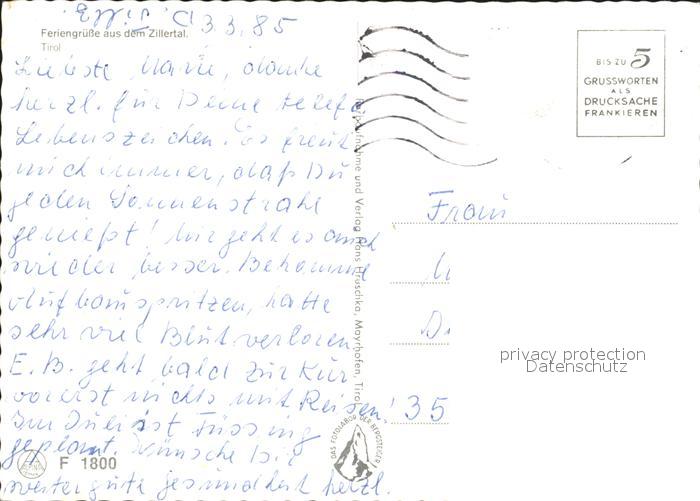 13.3.85
Feriengrüße aus dem Zillertal.
Tirol
Liebste Marie, danke
herzl. für Deine telef.
Lebenszeichen. Es freut
mich immer, daß Du
jeden Sonnenstrahl
genießt! Mir geht es auch
wieder besser. Bekomme
Aufbauspritzen, hatte
sehr viel Blut verloren
E.B. geht bald zur Kur
vorerst nichts mit Reisen!
Im Juli ist Füssing
geplant. Wünsche Dir
weiter gute Gesundheit herzl.
F 1800
und Verlag Hans Hruschka, Mayrhofen, Tirol
DAS FOTOLABOR DER BERGSTEIGER
BIS ZU 5
GRUSSWORTEN
ALS
DRUCKSACHE
FRANKIEREN
Frau
35
privacy protection
Datenschutz